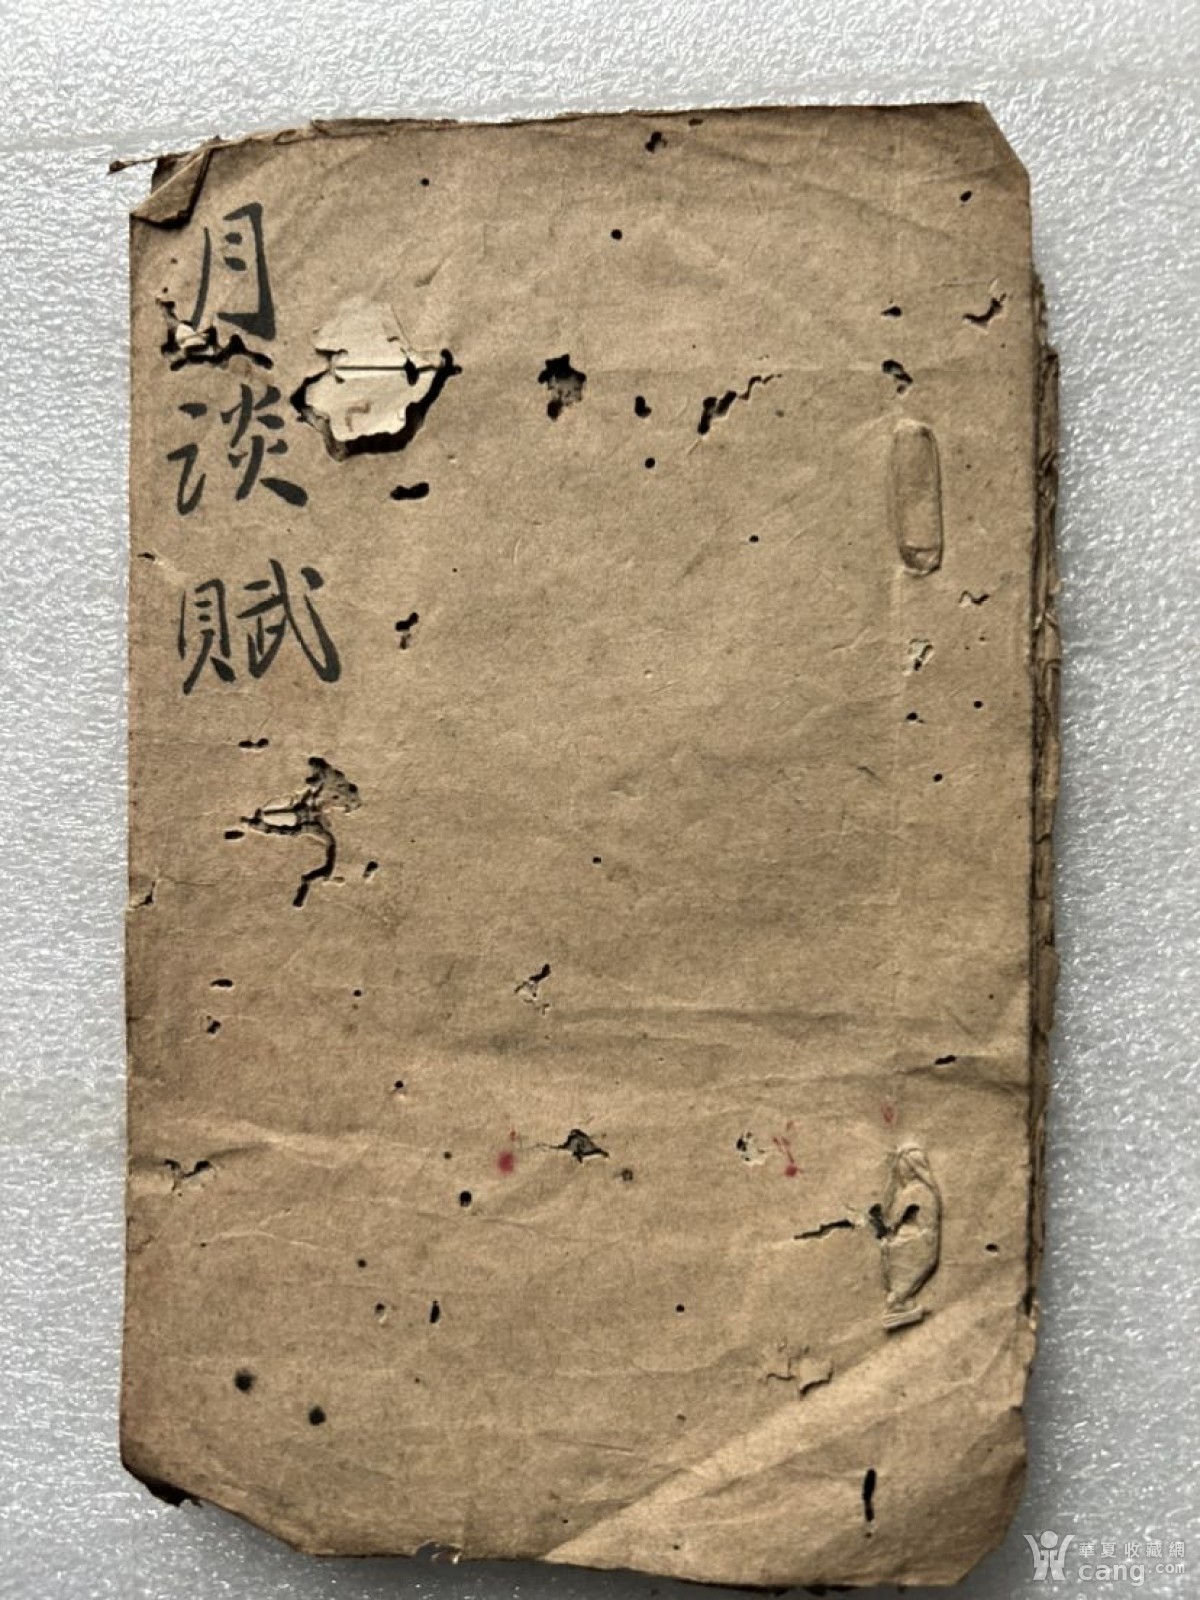 月談賦
華夏收藏網
cang.com